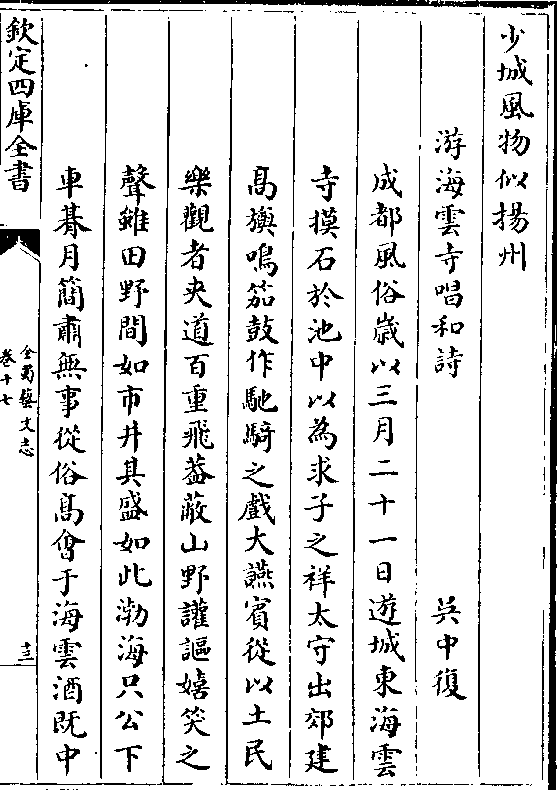 少城風物似揚州
游海雲寺唱和詩 吳中復
成都風俗歲以三月二十一日遊城東海雲
寺摸石於池中以為求子之祥太守出郊建
高旟鳴笳鼓作馳騎之戲大讌賓從以主民
樂觀者夾道百重飛葢蔽山野讙謳嬉笑之
聲雖田野間如市井其盛如此渤海只公下
車朞月簡肅無事從俗高會于海雲酒既中
欽定四庫全書
全蜀藝文志
卷十七
十二